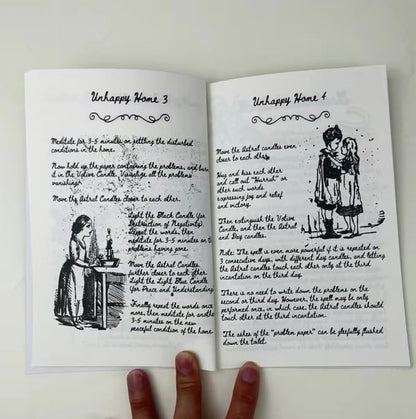 Unhappy Home 3
Meditate for 3-5 minutes on settling the disturbed
conditions in the home.
Now hold up the paper containing the problems, and burn
it in the Votive Candle. Visualize all the problems
vanishing!
Move the Astral Candles closer to each other.
Light the Black Candle (for
Destruction of Negativity).
Repeat the words, then
meditate for 3-5 minutes on
problems having gone.
Move the Astral Candles
further closer to each other.
Light the Light Blue Candle
for Peace and Understanding.
Finally repeat the words once
more, then meditate for another
3-5 minutes on the new
peaceful condition of the home.
Unhappy Home 4
Move the Astral Candles even
closer to each other.
Hug and kiss each other
and call out "Hurrah" or
other such words
expressing joy and relief
and victory.
Then extinguish the Votive
Candle, and then the Astral
and Day candles.
Note: The spell is even more powerful if it is repeated on
3 consecutive days, with different day candles, and letting
the Astral candles touch each other only at the third
incantation on the third day.
There is no need to write down the problems on the
second or third day. However, the spell may be only
performed once, in which case, the Astral candles should
touch each other at the third incantation.
The ashes of the "problem paper" can be gleefully flushed
down the toilet.